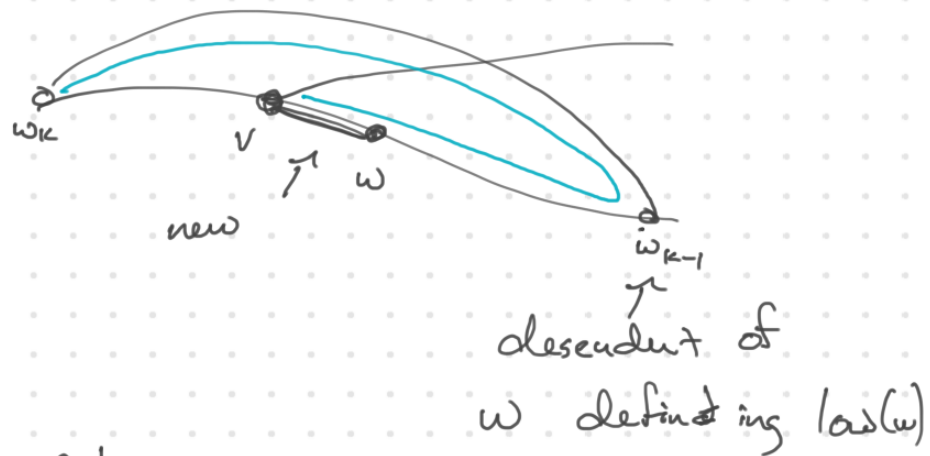 wk
v
w
new
wk-1
desendent of
w defining low(w)